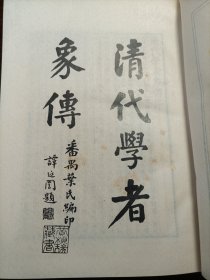 清代學者
象傳
番禺葉氏編印
譚延闓題